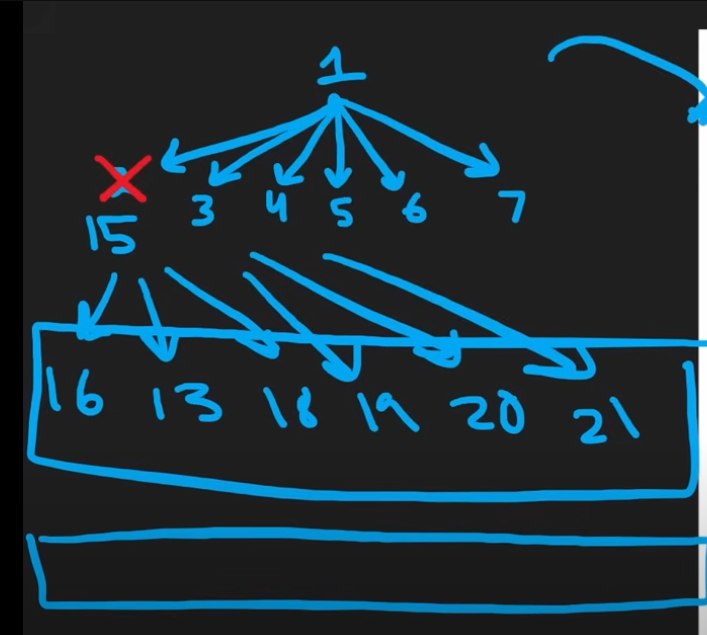 1
3 4 5 6 7
15
16 13 18 19 20 21